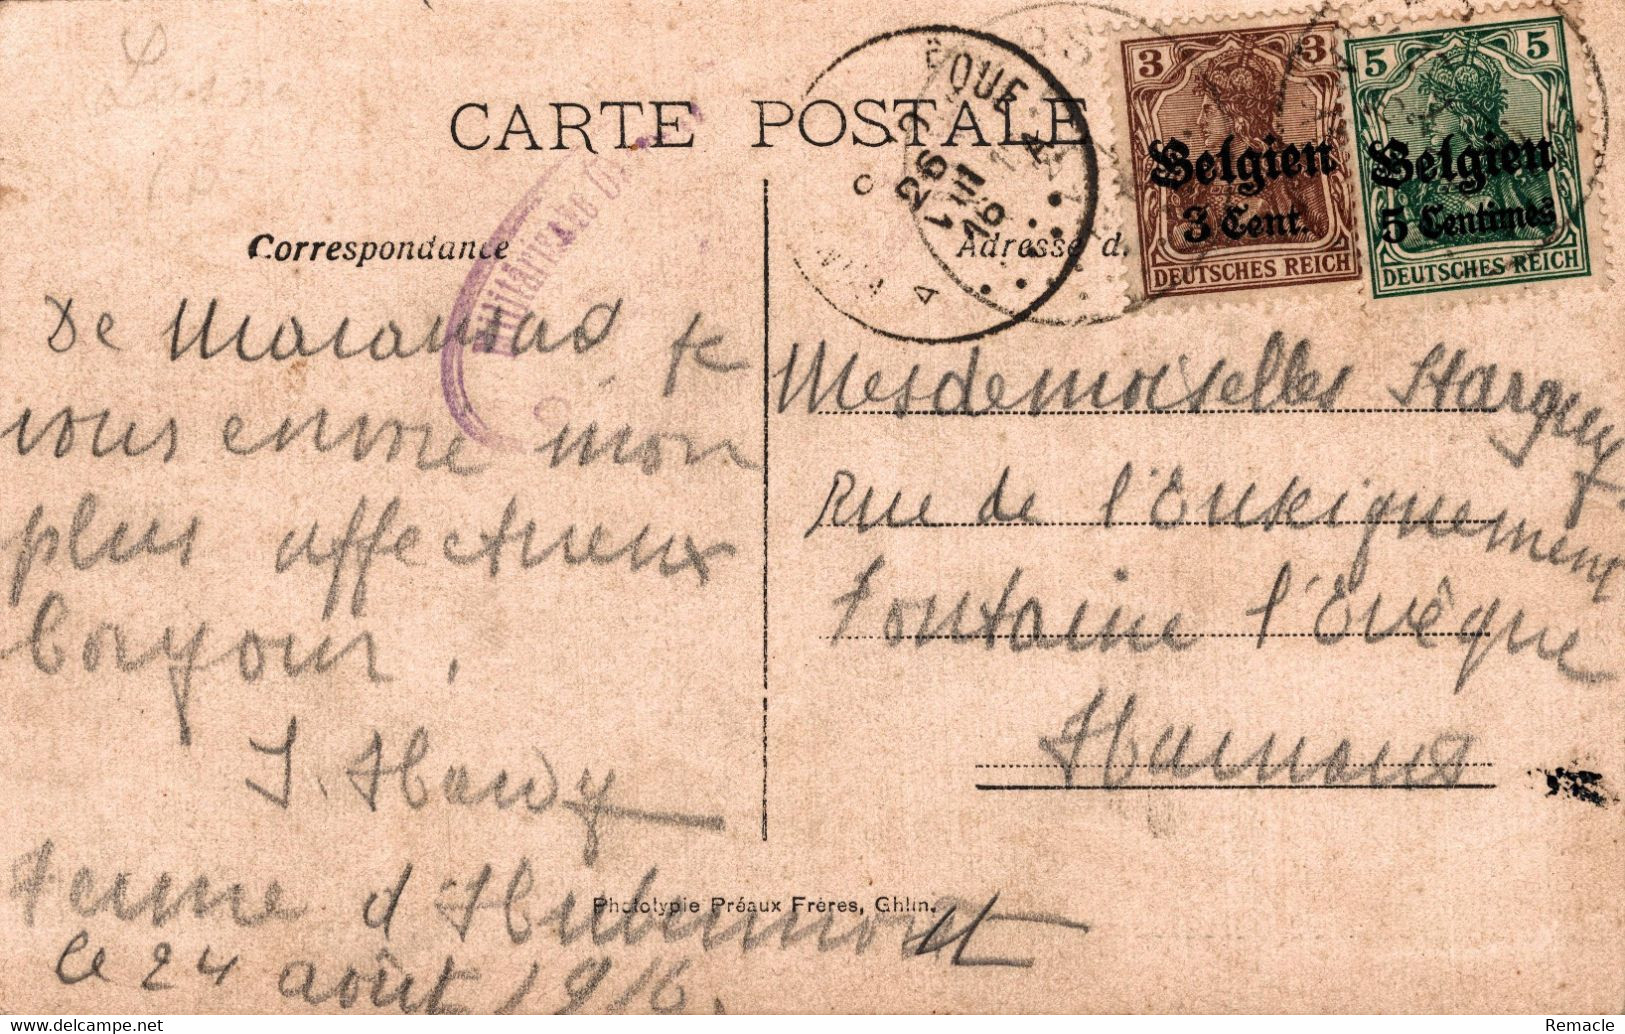 CARTE POSTALE
3 3
Belgien
3 Cent.
DEUTSCHES REICH
5 5
Belgien
5 Centimes
DEUTSCHES REICH
26 VIII
16
4
Militärische
Correspondance
Adresse d
De je
vous envoie mon
plus affectueux
bonjour.
Mesdemoiselles
Rue de l'Enseignement
Fontaine l'Evêque
Hainaut
Ferme d'Hubermont
Phototypie Préaux Frères, Ghlin.
le 24 août 1916.
delcampe.net
Remacle